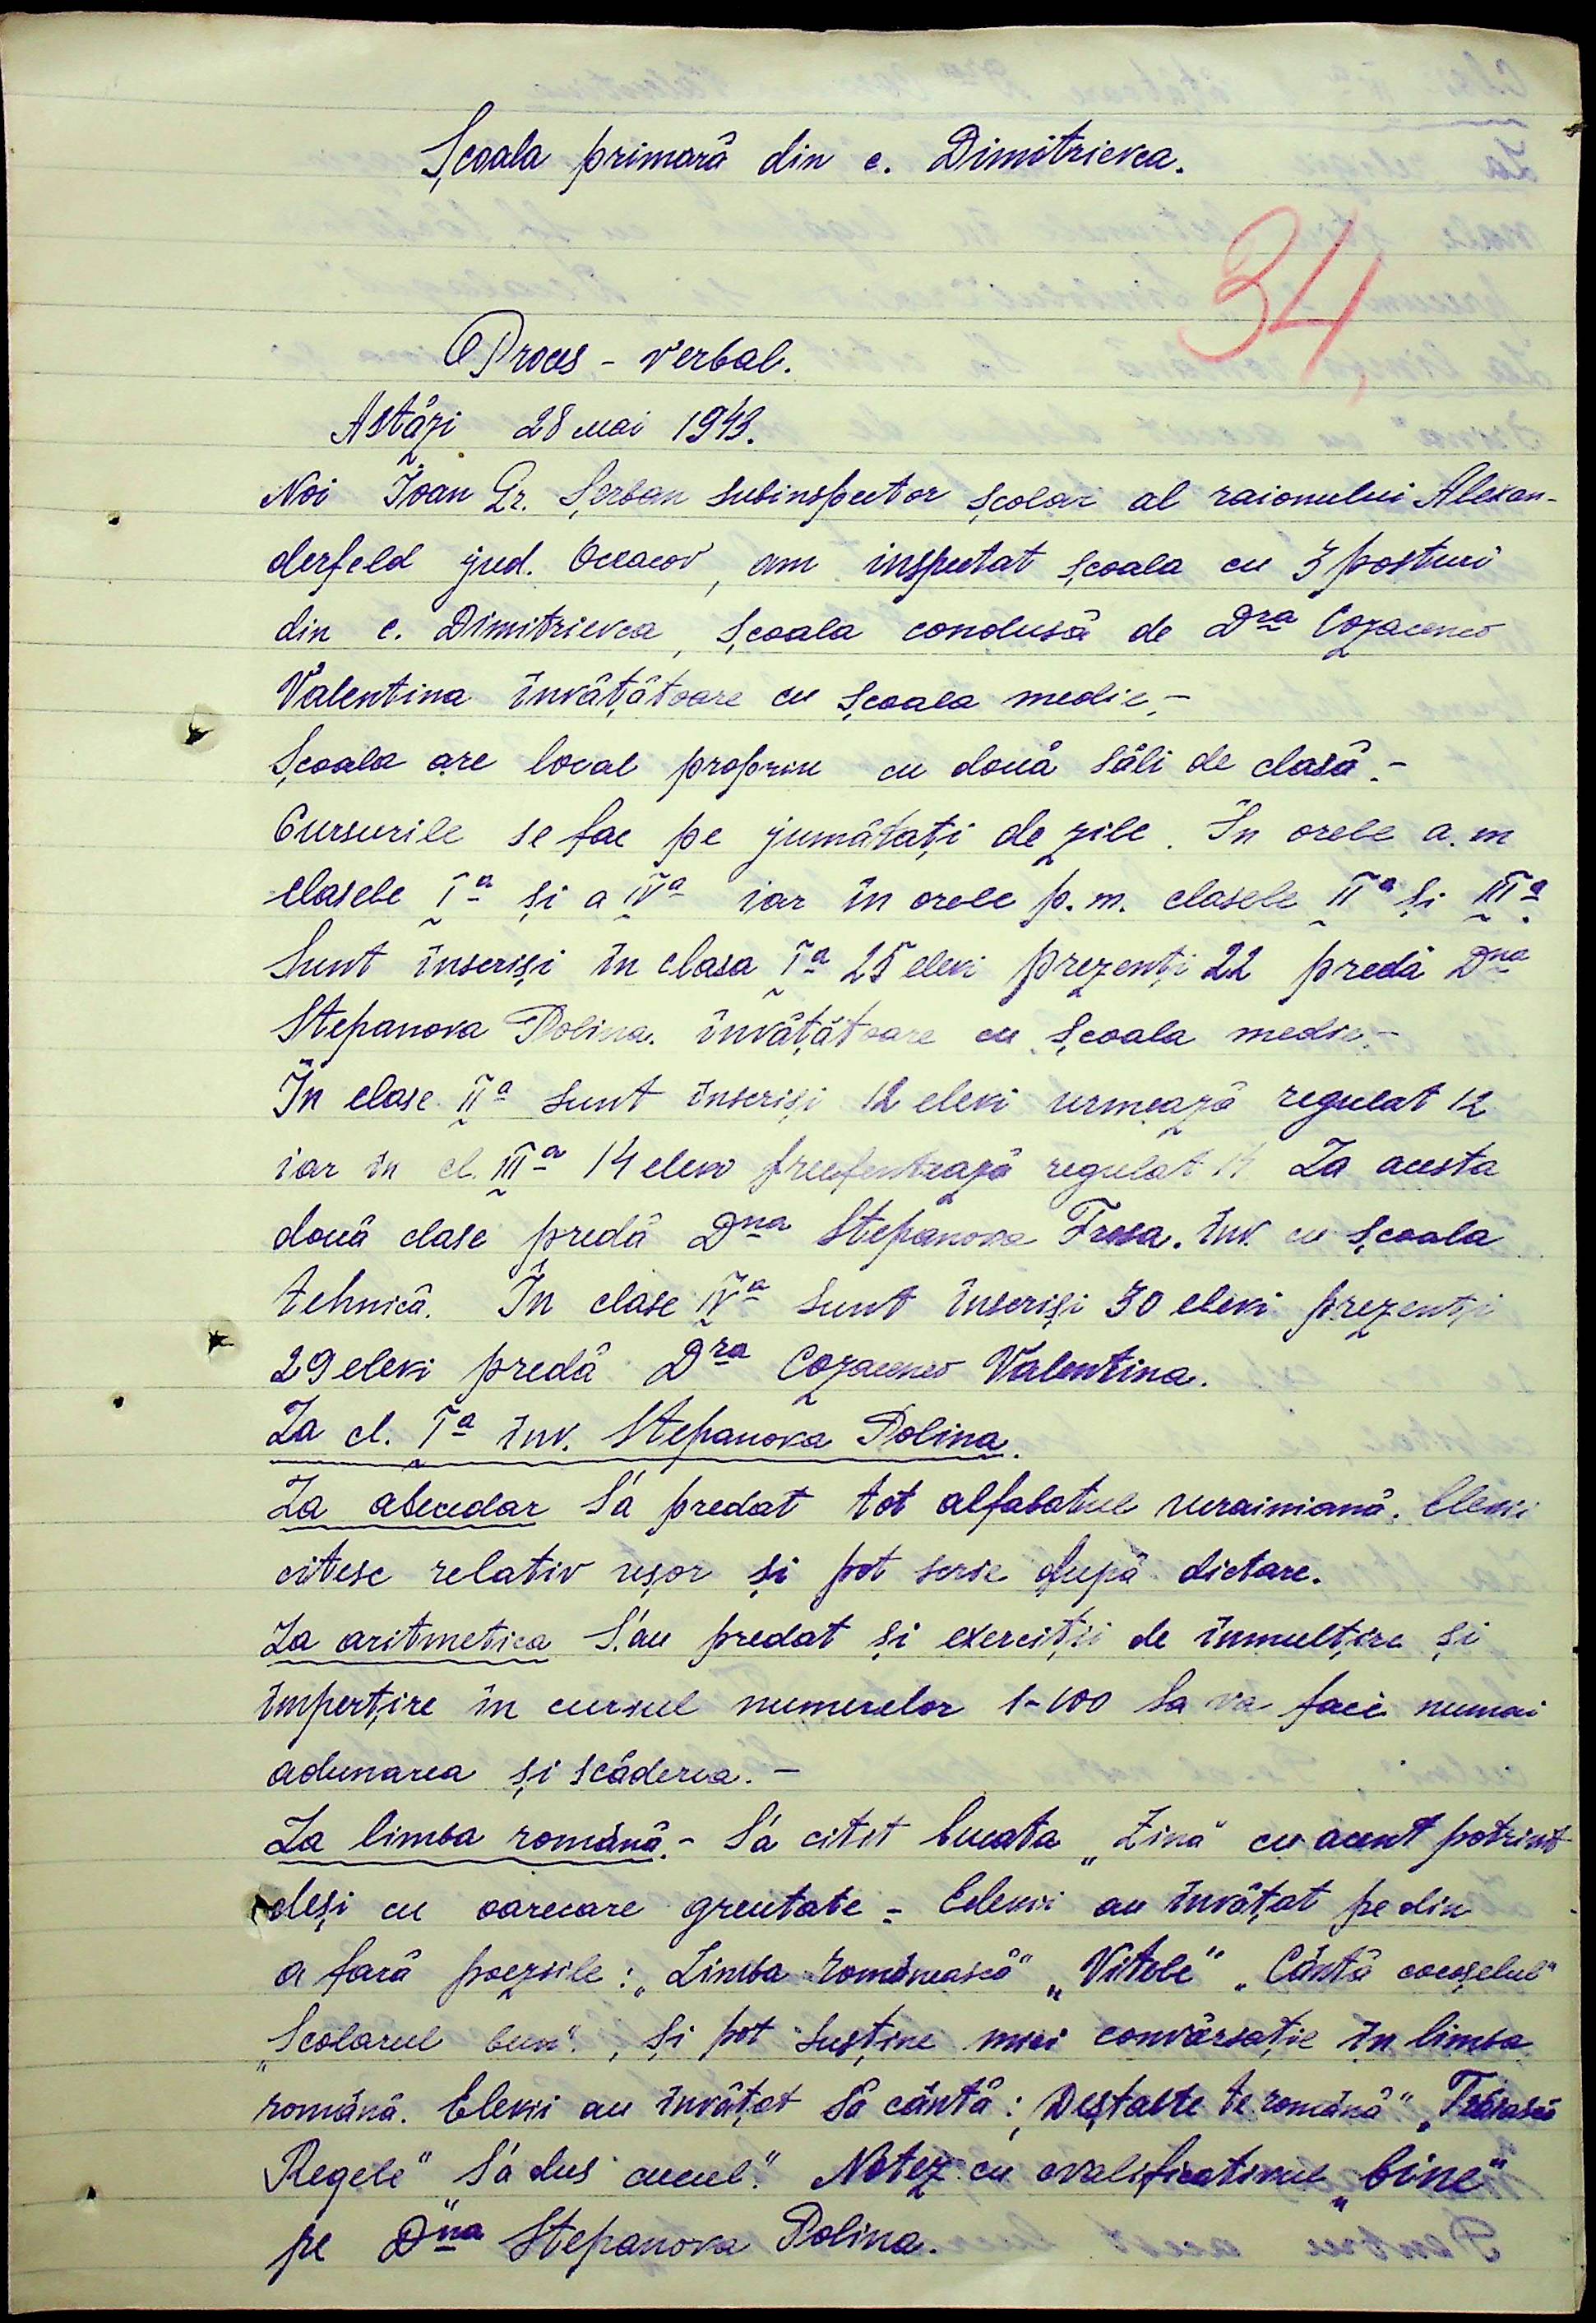 Școala primară din c. Dimitrievca.
34
Proces - verbal.
Astăzi 28 mai 1943.
Noi Ioan Gr. Șerban subinspector școlar al raionului Alexan-
derfeld jud. Oceacov, am inspectat școala cu 3 posturi
din c. Dimitrievca, școala condusă de Dra Cozacenco
Valentina învățătoare cu școala medie.-
Școala are local propriu cu două săli de clasă.-
Cursurile se fac pe jumătați de zile. În orele a.m
clasele Ia și a IVa iar în orele p.m. clasele IIa și IIIa.
Sunt înseriși în clasa Ia 25 elevi prezenți 22 predă Dna
Stepanova Polina. învățătoare cu școala medie.-
În clase IIa sunt înseriși 12 elevi urmează regulat 12
iar în cl. IIIa 14 elevi regulat 14 La acesta
două clase predă Dna Stepanova Frosa. înv. cu școala
tehnică. În clase IVa sunt înseriși 30 elevi prezenți
29 elevi predă Dra Cozacenco Valentina.
La cl. Ia înv. Stepanova Polina.
La abecedar S'a predat tot alfabatul ucrainiană. Elevii
citesc relativ ușor și pot scrie după dictare.
La aritmetica S'au predat și exerciții de înmulțire și
împerțire în cursul numerelor 1-100 Sa va face numai
adunarea și scăderea.-
La limba română.- S'a citit bucata „Zină" cu acent potrivit
deși cu oarecare greutate - Elevii au învățat pe din
a fară poeziile: „Limba românească" „Vitele" „Cântă cocoșelul"
„Școlarul bun", și pot susține mici convărsație în limba
română. Elevii au învățat să cântă: „Deștabte te română" „Trăiască
Regele" „S'a dus cucul." Notez cu cvalificativul „bine"
pe Dna Stepanova Polina.